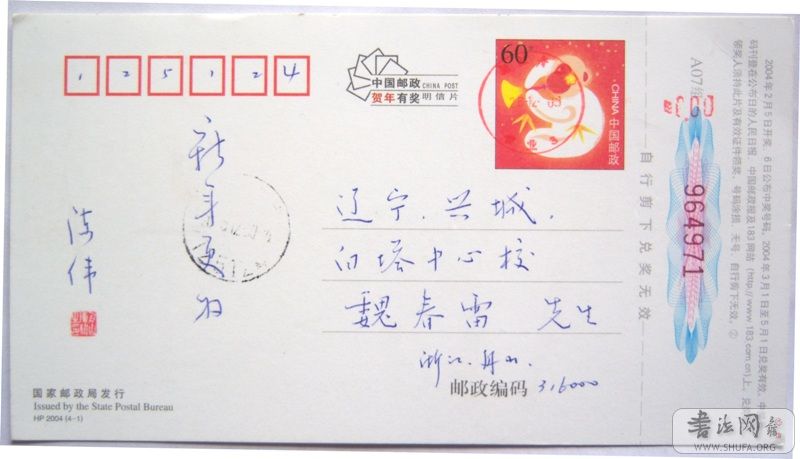 125124
中国邮政 CHINA POST
贺年有奖 明信片
60
CHINA 中国邮政
辽宁.兴城.
白塔中心校
魏春雷 先生
浙江.舟山
邮政编码 316000
新年更好
陈伟
国家邮政局发行
Issued by the State Postal Bureau
HP 2004 (4-1)
自行剪下兑奖无效
A07组
964971
2004年2月5日开奖，6日公布中奖号码。2004年3月1日至5月1日兑奖有效。中
码刊登在公布日的人民日报、中国邮政报及183网站(http://www.183.com.cn)上。兑
领奖人须持此片及有效证件领奖，号码涂损、无号、自行剪下无效。②
书法网
WWW.SHUFA.ORG